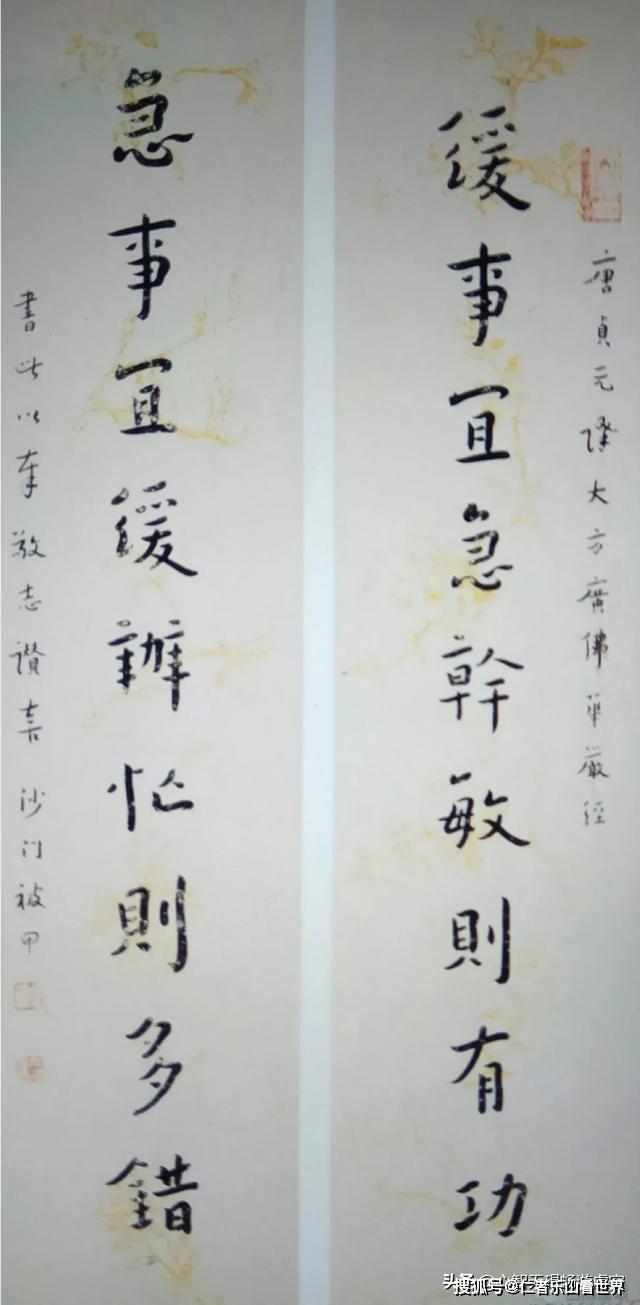 唐貞元譯大方廣佛華嚴經
緩事宜急幹敏則有功
急事宜緩辦忙則多錯
書此以奉敬志讚喜 沙門被甲
搜狐号@仁者乐山看世界
头条